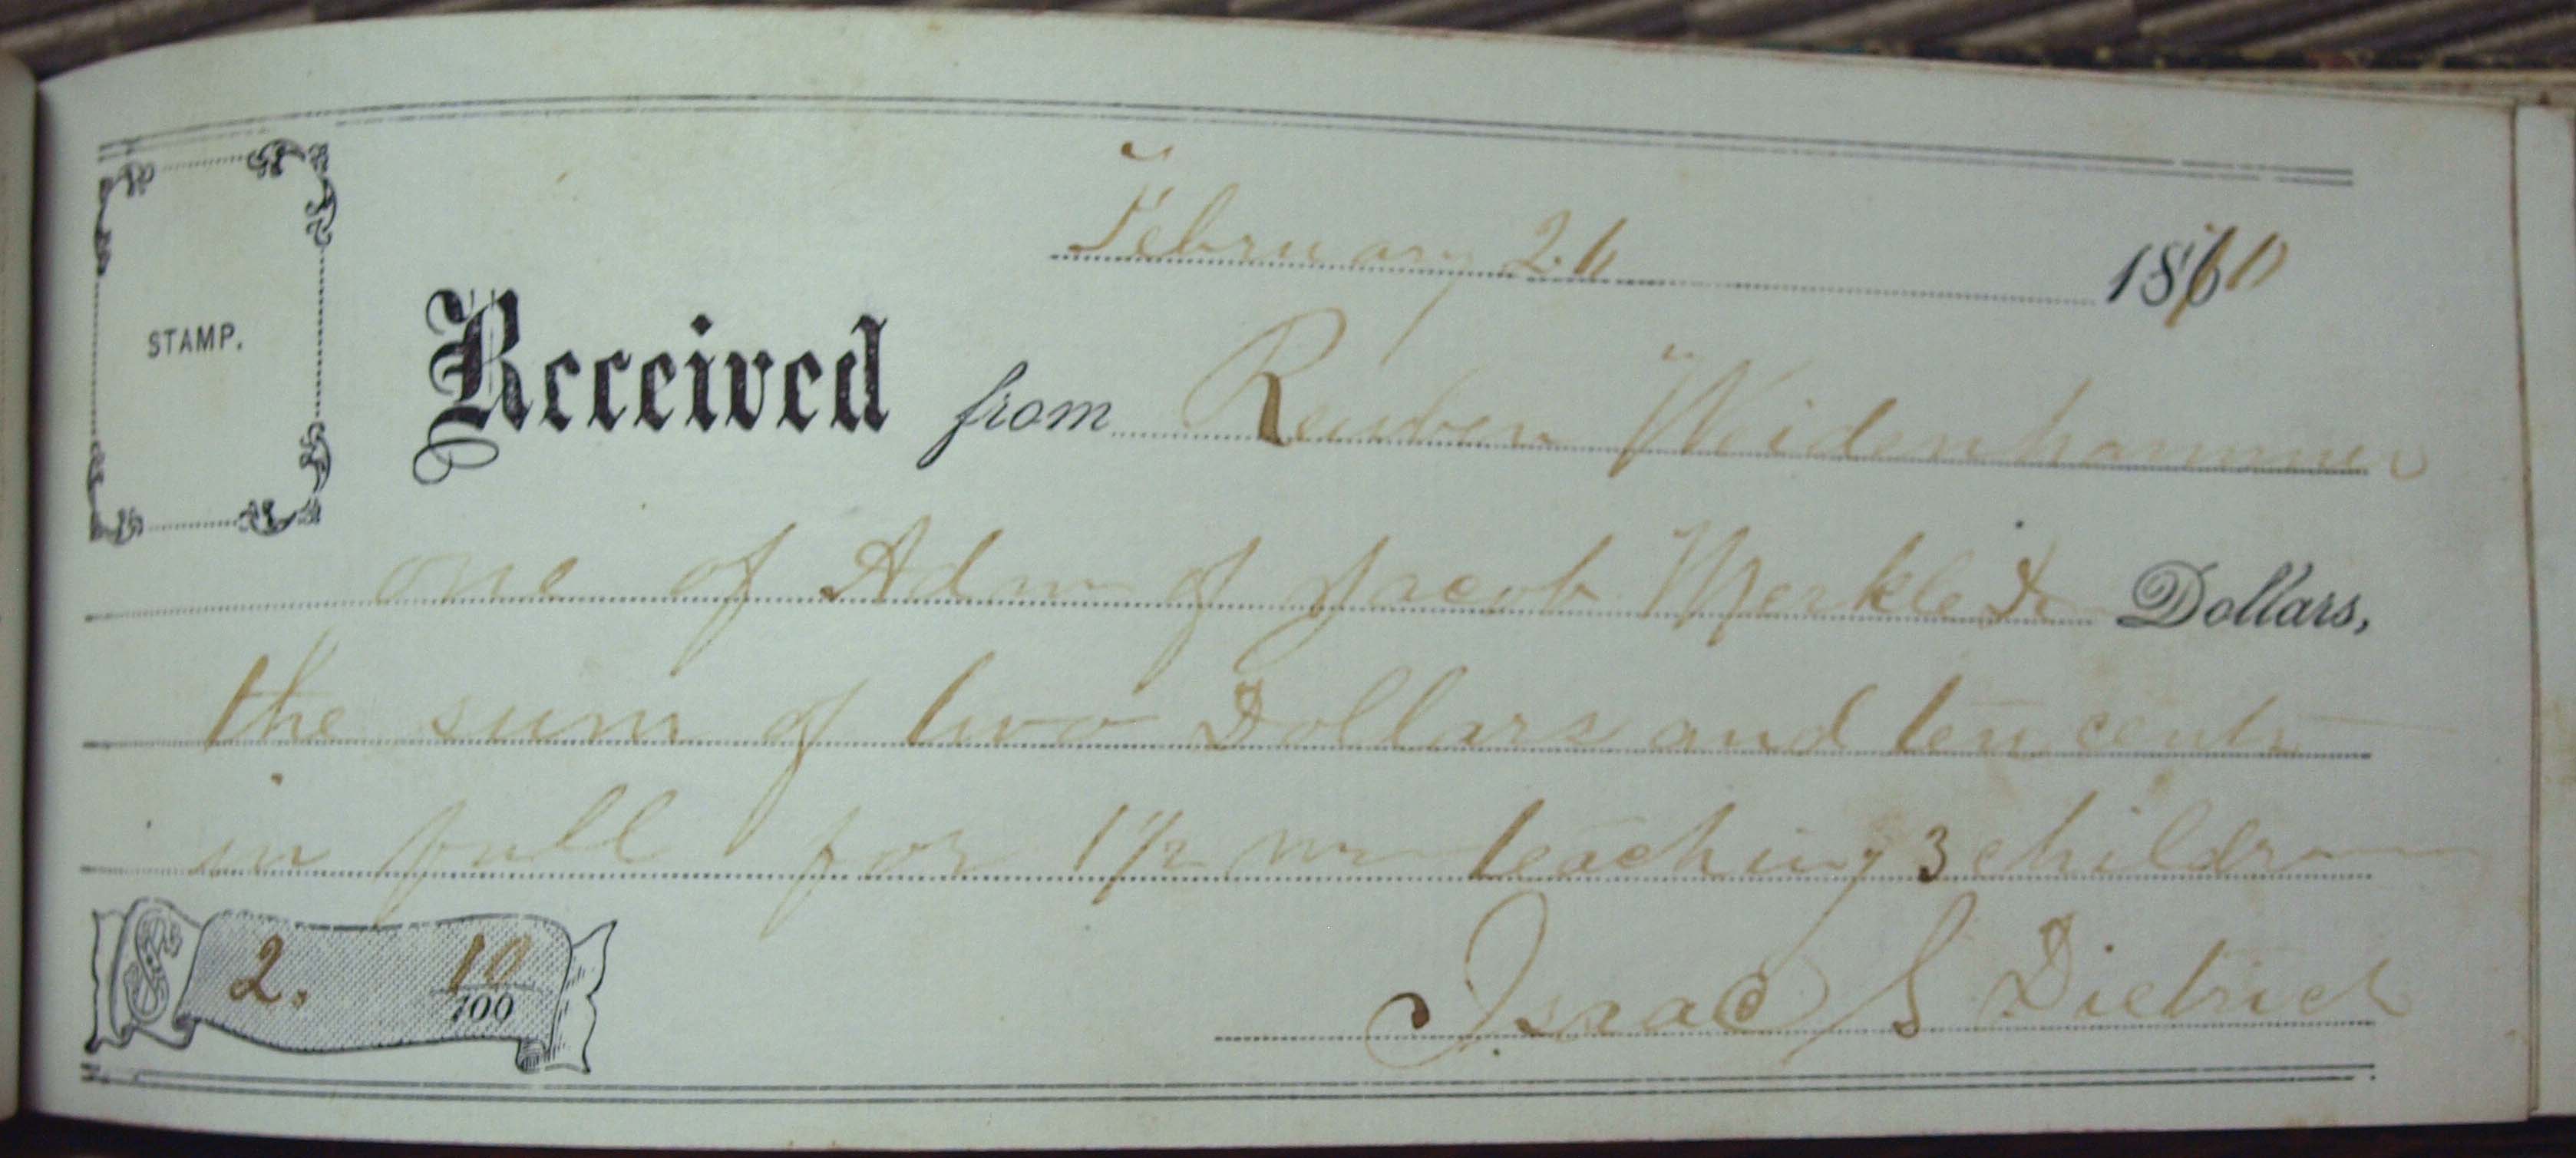 STAMP.
February 26 18
Received from Reuben Weidenhammer
one of Adm of Jacob Merkle Dollars,
the sum of two Dollars and ten cents
in full for 1 1/2 m teaching 3 children
$ 2. 10/100
Isaac S Dietrich